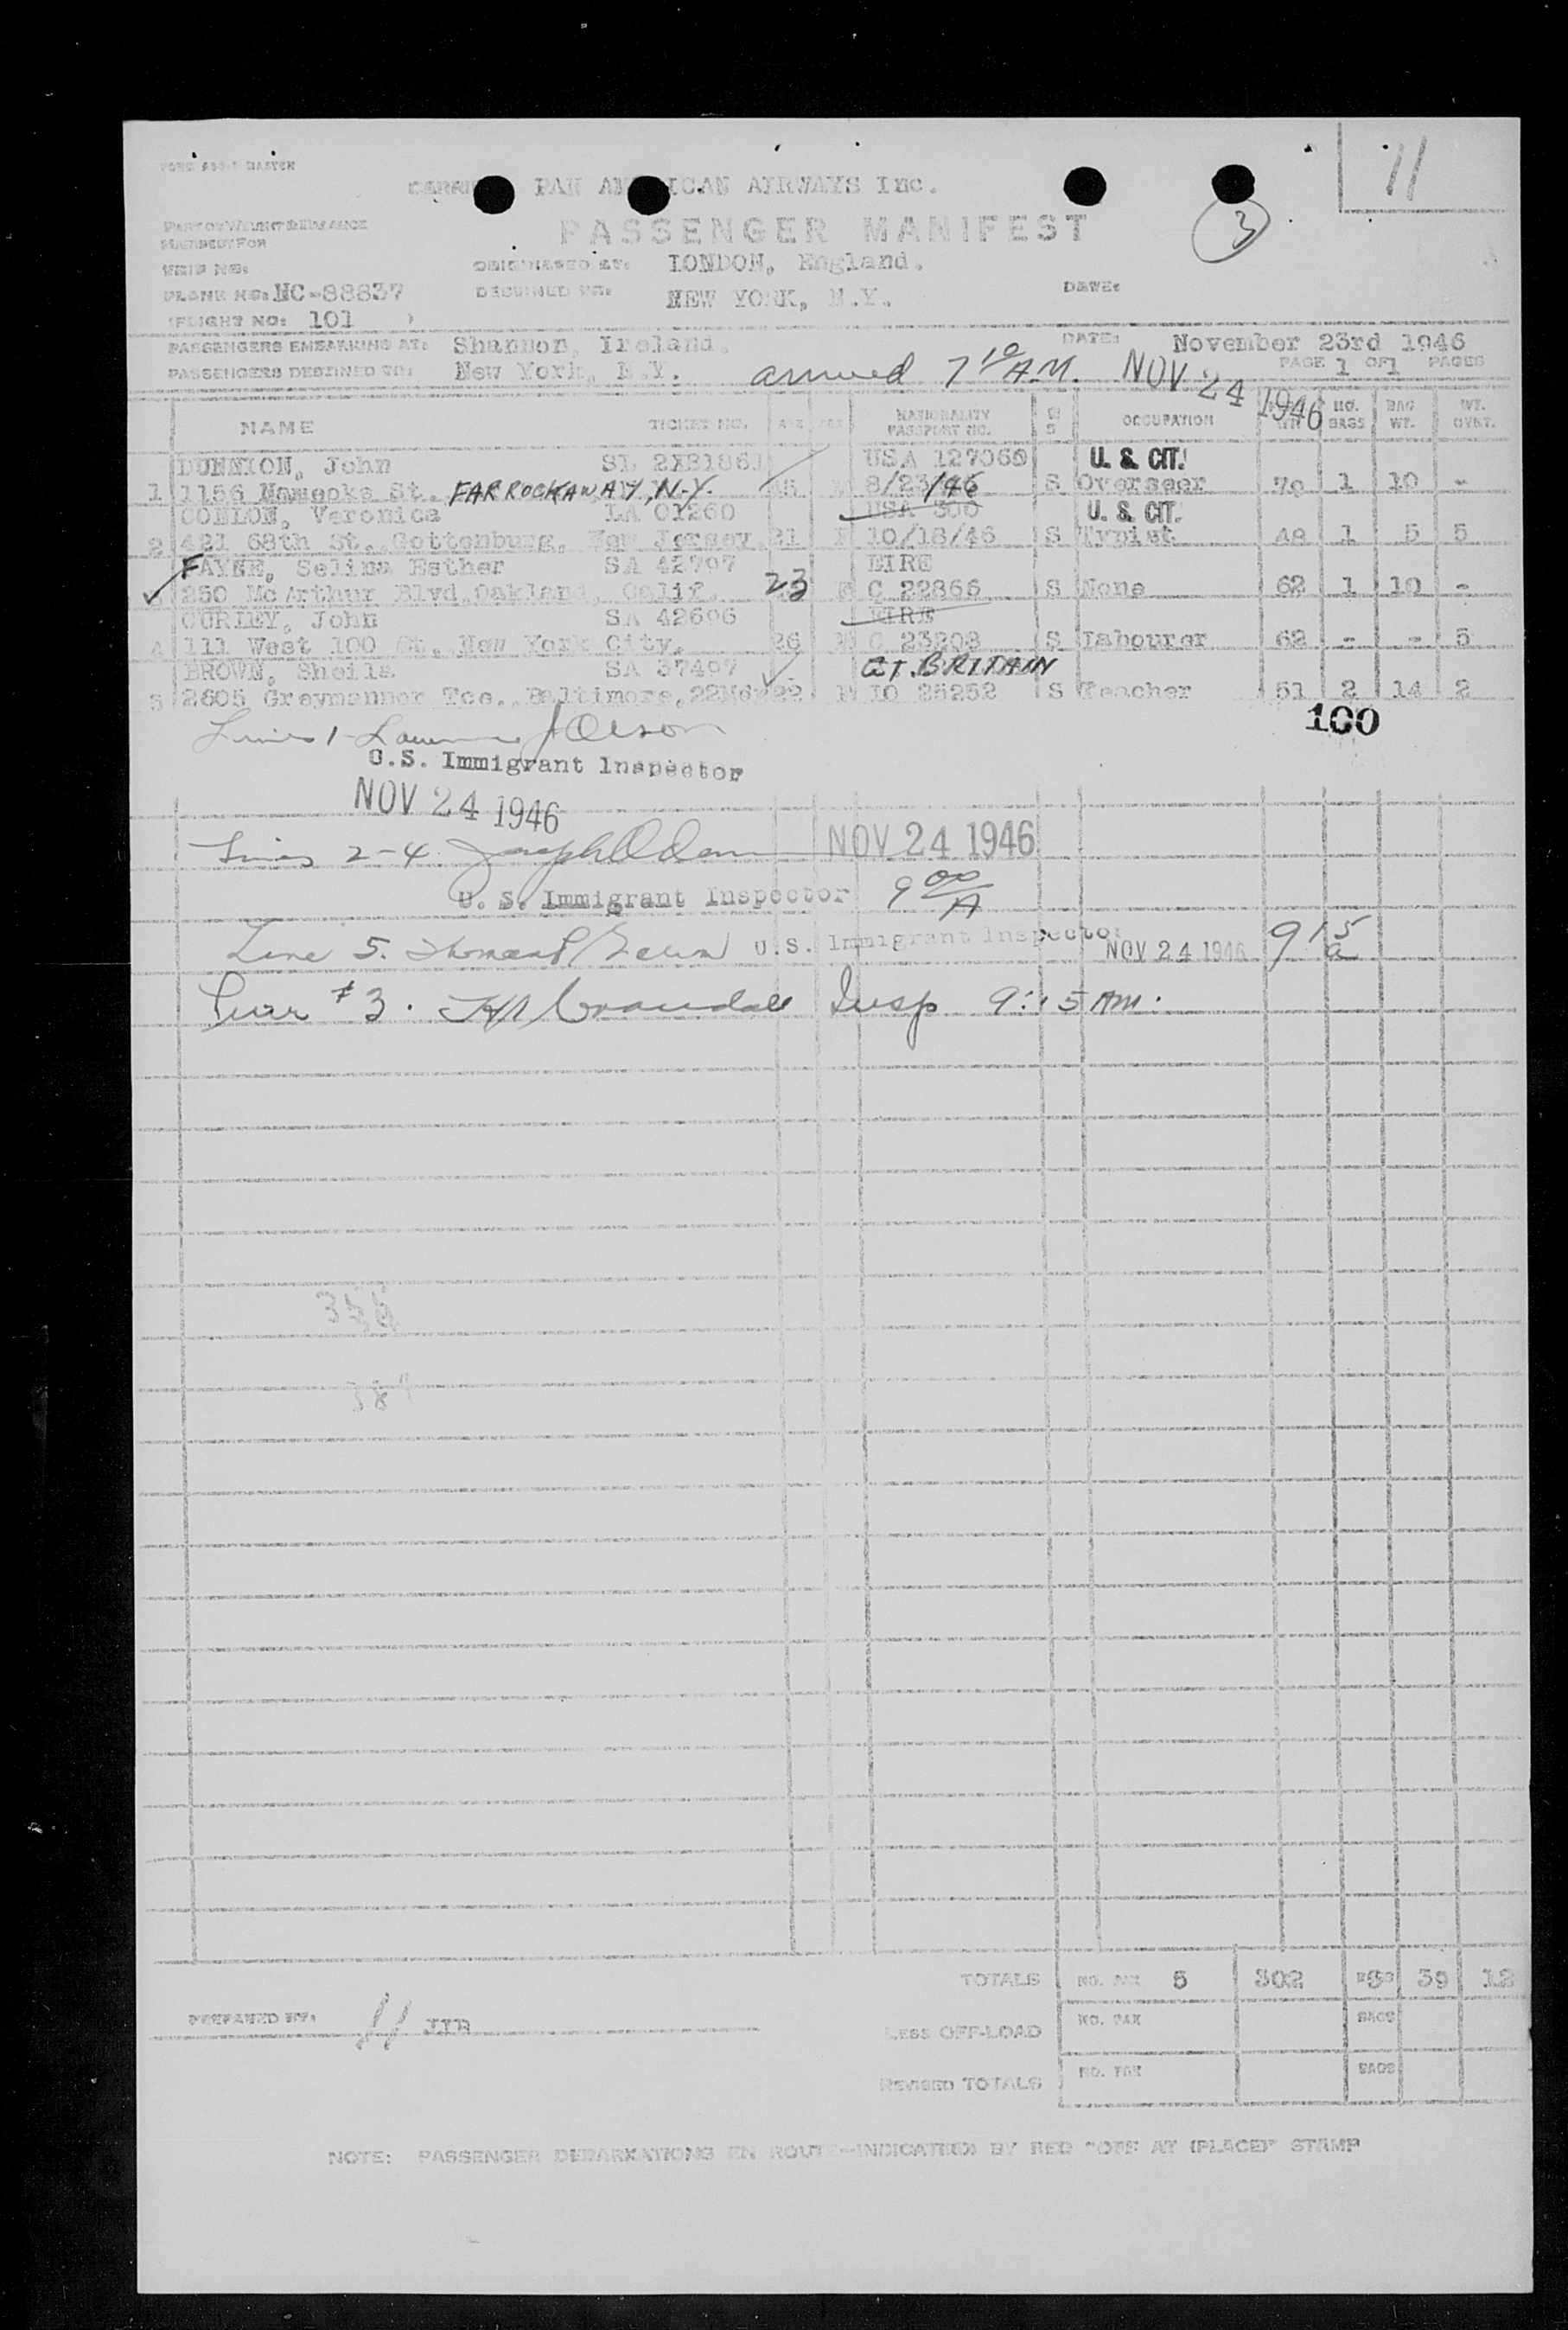 11
PAN AMERICAN AIRWAYS Inc.
PASSENGER MANIFEST
3
TRIP NO:
ORIGINATED AT: LONDON, England.
PLANE NO: NC-88837
DESTINED TO: NEW YORK, N.Y.
DATE:
(FLIGHT NO: 101 )
PASSENGERS EMBARKING AT: Shannon, Ireland.
DATE: November 23rd 1946
PASSENGERS DESTINED TO: New York, N.Y.
arrived 7 10 A.M. NOV 24 1946
PAGE 1 OF 1 PAGES
NAME TICKET NO. AGE SEX NATIONALITY PASSPORT NO. OCCUPATION NO. BAGS BAG WT. WT. OVWT.
DUNNION, John USA 127069 U. S. CIT.
1 1156 St. FAR ROCKAWAY, N.Y. 8/23/46 S Overseer 79 1 10 -
CONLON, Veronica LA 01260 USA 300 U. S. CIT.
2 421 68th St., Gottenburg, New Jersey 21 F 10/18/46 S Typist 48 1 5 5
FAYNE, Selina Esther SA 42797 EIRE
250 McArthur Blvd, Oakland, Calif. 23 F C 22866 S None 62 1 10 -
CURLEY, John SA 42606 EIRE
4 111 West 100 St., New York City. 26 M C 23208 S Labourer 62 - - 5
BROWN, Sheila SA 37497 GT. BRITAIN
5 2605 Greymanner Tce., Baltimore, 22 F IO 25252 S Teacher 51 2 14 2
100
Lines 1 Olson
U.S. Immigrant Inspector
NOV 24 1946
Lines 2-4 Joseph NOV 24 1946
U. S. Immigrant Inspector 9 00 A
Line 5. U.S. Immigrant Inspector NOV 24 1946 9 15 a
Line #3. Crandall Insp 9:15 AM.
TOTALS NO. PAX 5 302 BAGS 5 39 12
PREPARED BY:
LESS OFF-LOAD NO. PAX BAGS
REVISED TOTALS NO. PAX BAGS
NOTE: PASSENGER DEBARKATIONS EN ROUTE—INDICATED BY RED "OFF AT (PLACE)" STAMP